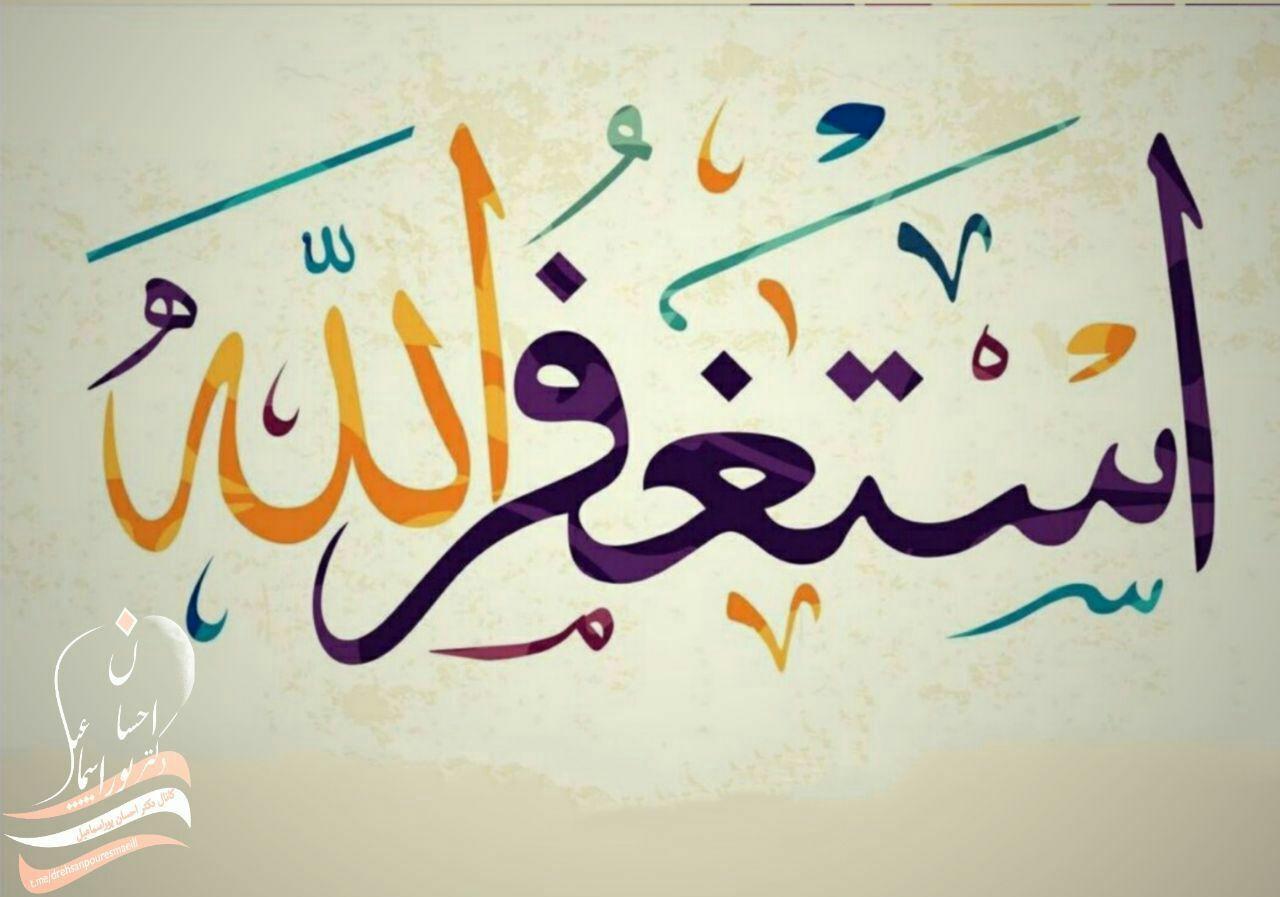 استغفر اللهُ
ن
احسان
دکتر پوراسماعیل
کانال دکتر احسان پوراسماعیل
t.me/drehsanpouresmaeill